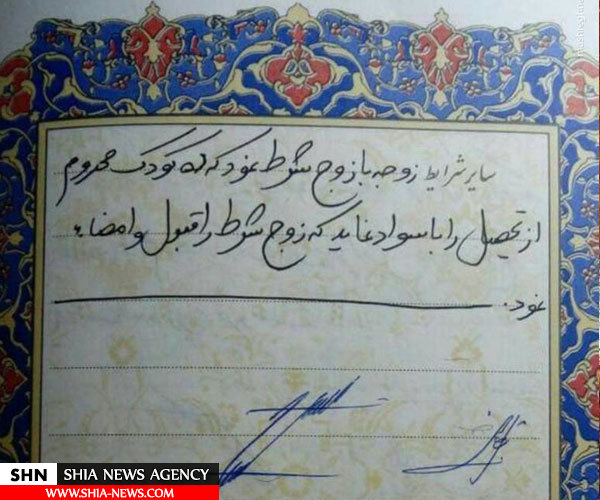 سایر شرایط زوجه با زوج شرط نمود که کودک محروم
از تحصیل را باسواد نماید که زوج شرط را قبول و امضاء
نمود.
SHN SHIA NEWS AGENCY
WWW.SHIA-NEWS.COM